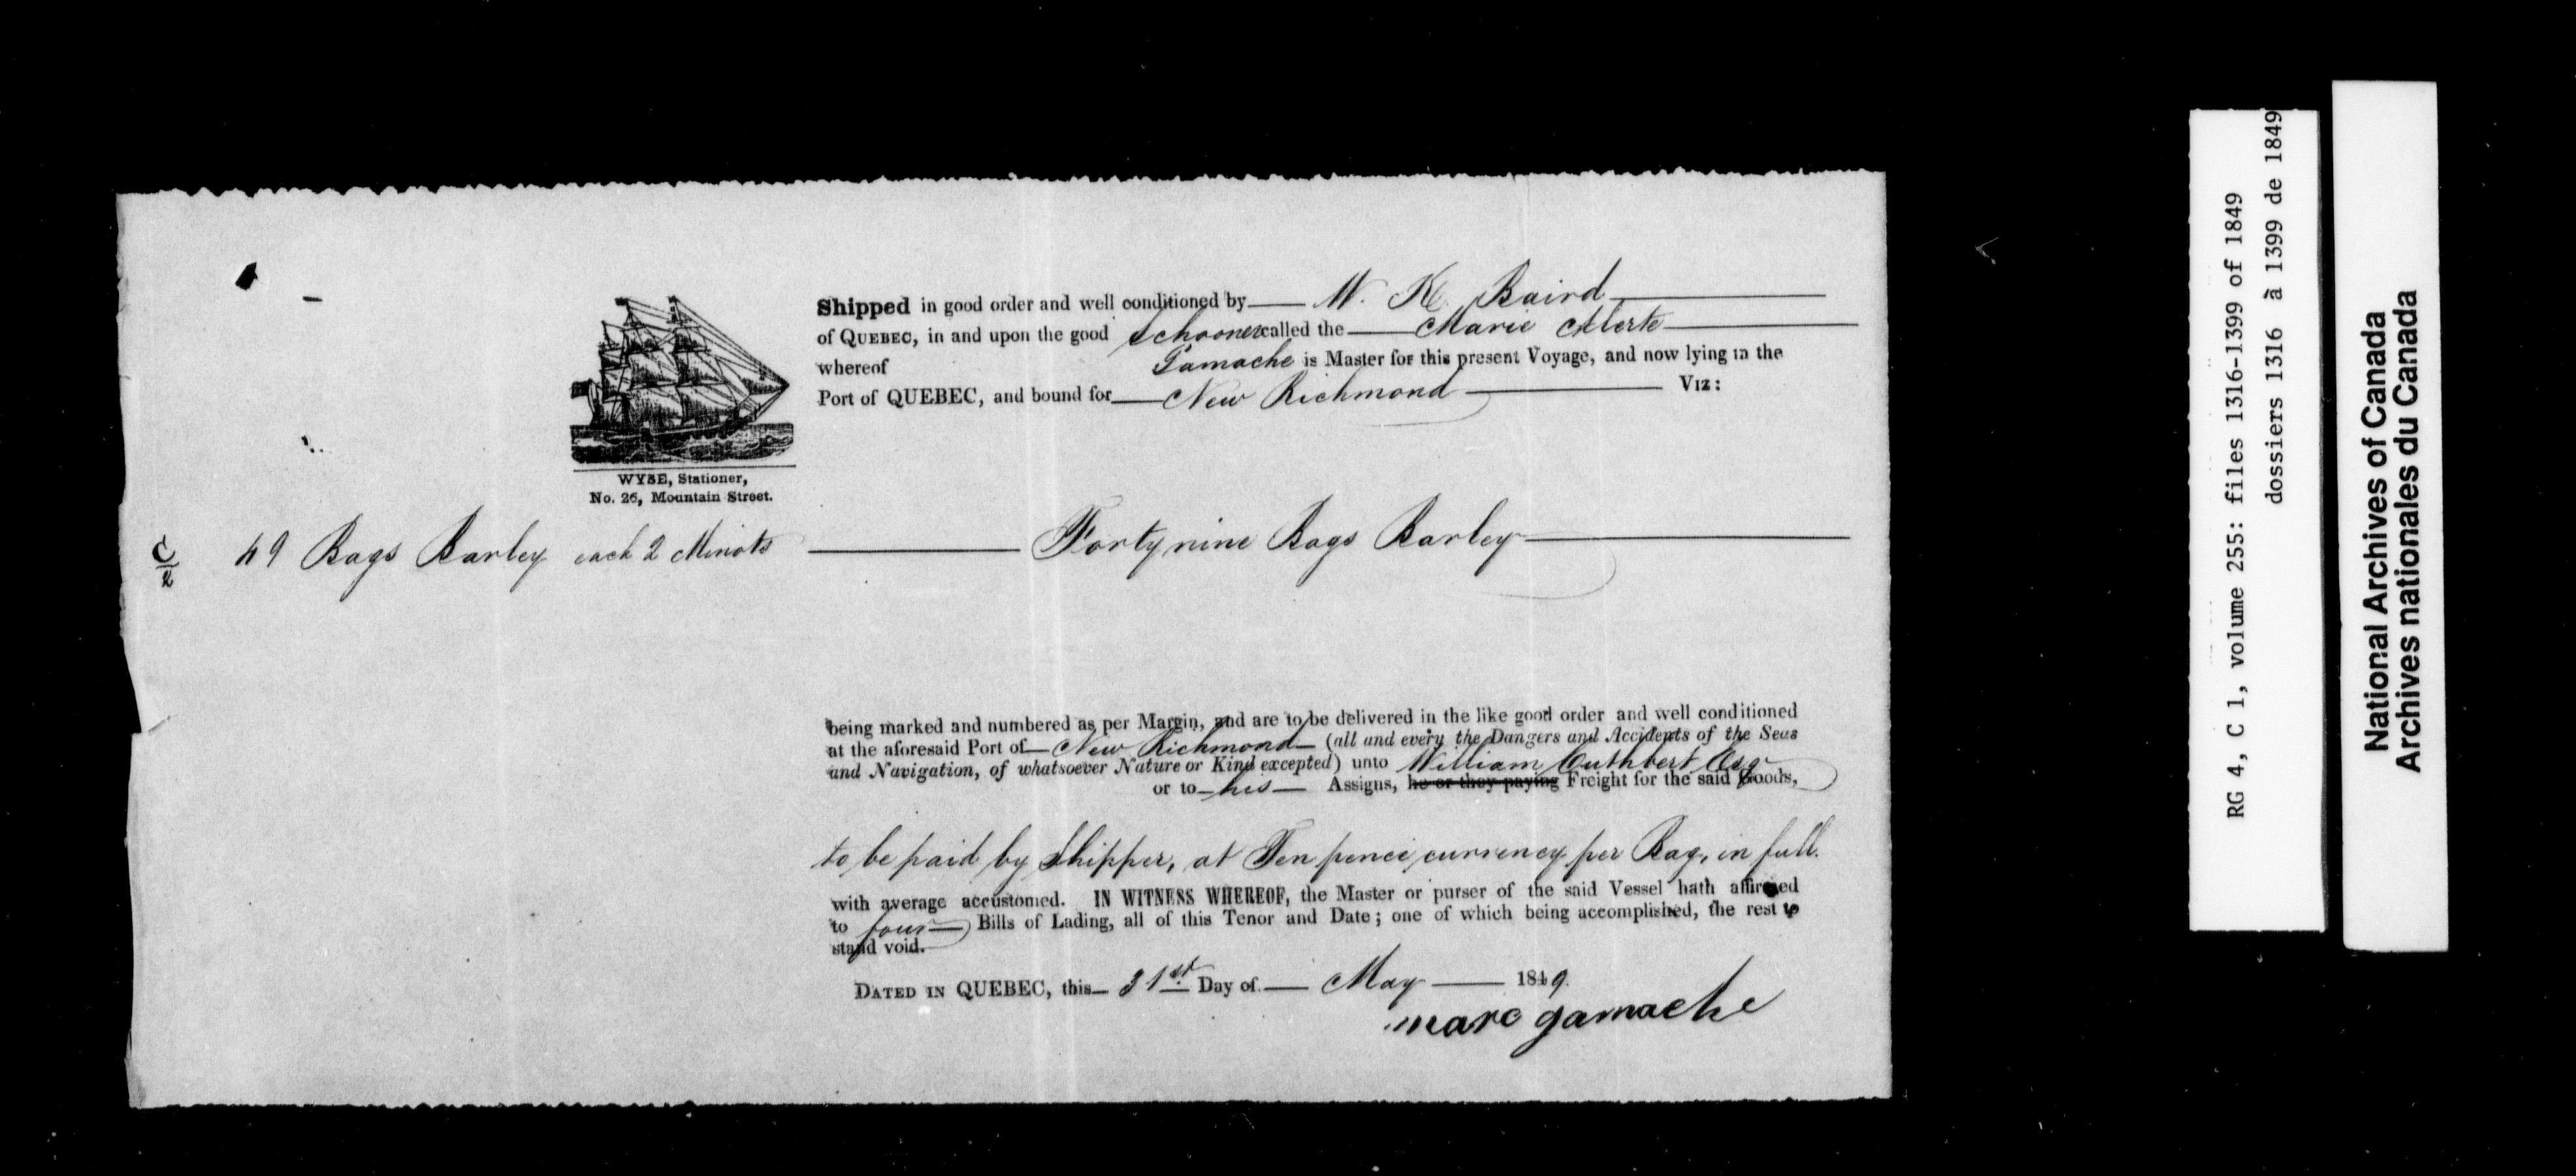 Shipped in good order and well conditioned by W. K. Baird
of QUEBEC, in and upon the good Schooner called the Marie Alerte
whereof Gamache is Master for this present Voyage, and now lying in the
Port of QUEBEC, and bound for New Richmond VIZ:
WYSE, Stationer,
No. 26, Mountain Street.
C/2 49 Bags Barley each 2 Minots Forty nine Bags Barley
being marked and numbered as per Margin, and are to be delivered in the like good order and well conditioned
at the aforesaid Port of New Richmond (all and every the Dangers and Accidents of the Seas
and Navigation, of whatsoever Nature or Kind excepted) unto William Cuthbert Esqr
or to his Assigns, he or they paying Freight for the said Goods,
to be paid by Shipper, at Ten pence currency per Bag, in full.
with average accustomed. IN WITNESS WHEREOF, the Master or purser of the said Vessel hath affirmed
to four Bills of Lading, all of this Tenor and Date; one of which being accomplished, the rest to
stand void.
DATED IN QUEBEC, this 31st Day of May 1849.
marc gamache
RG 4, C 1, volume 255: files 1316-1399 of 1849
dossiers 1316 à 1399 de 1849
National Archives of Canada
Archives nationales du Canada